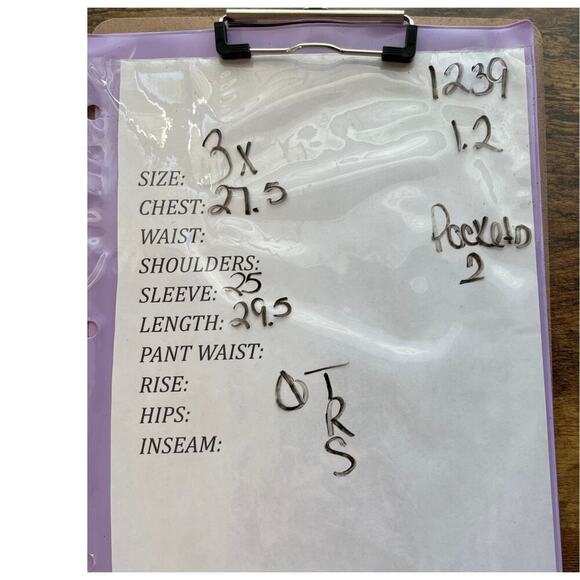 1239
1.2
SIZE: 3X
CHEST: 27.5
WAIST:
Pockets
2
SHOULDERS:
SLEEVE: 25
LENGTH: 29.5
PANT WAIST:
RISE:
HIPS:
INSEAM:
T
R
S